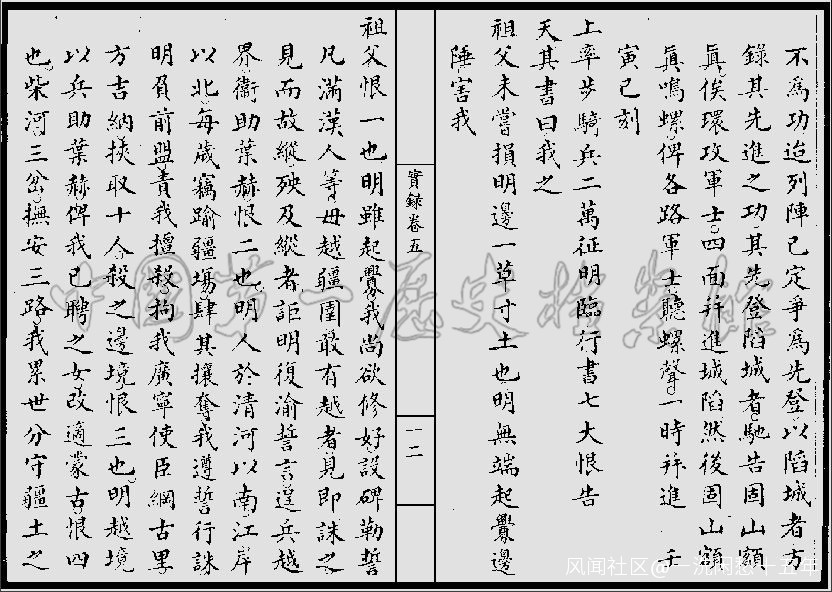 不爲功迨列陣已定爭爲先登以陷城者方
錄其先進之功其先登陷城者馳告固山額
眞俟環攻軍士四面并進城陷然後固山額
眞鳴螺俾各路軍士聽螺聲一時并進 壬
寅巳刻
上率步騎兵二萬征明臨行書七大恨告
天其書曰我之
祖父未嘗損明邊一草寸土也明無端起釁邊
陲害我
實錄卷五
一二
祖父恨一也明雖起釁我尚欲修好設碑勒誓
凡滿漢人等毋越疆圉敢有越者見即誅之
見而故縱殃及縱者詎明復渝誓言逞兵越
界衛助葉赫恨二也明人於清河以南江岸
以北每歲竊踰疆場肆其攘奪我遵誓行誅
明負前盟責我擅殺拘我廣寧使臣綱古里
方吉納挾取十人殺之邊境恨三也明越境
以兵助葉赫俾我已聘之女改適蒙古恨四
也柴河三岔撫安三路我累世分守疆土之
中国第一歷史檔案館